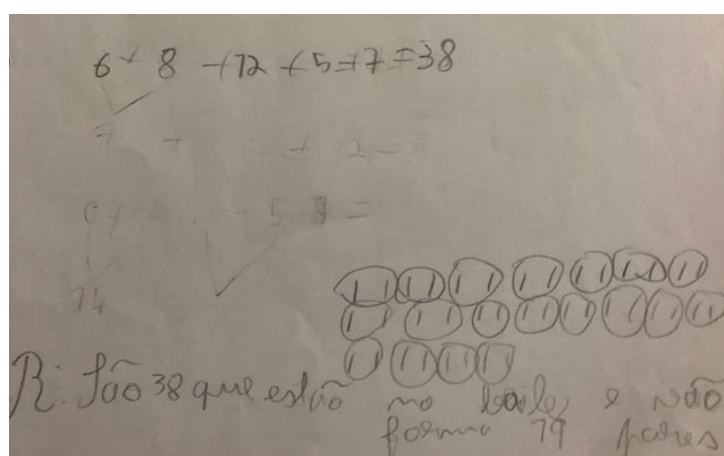 6 + 8 + 12 + 5 + 7 = 38
+ 12 =
5 8 =
14
R: São 38 que estão no baile, e vão
forma 19 pares